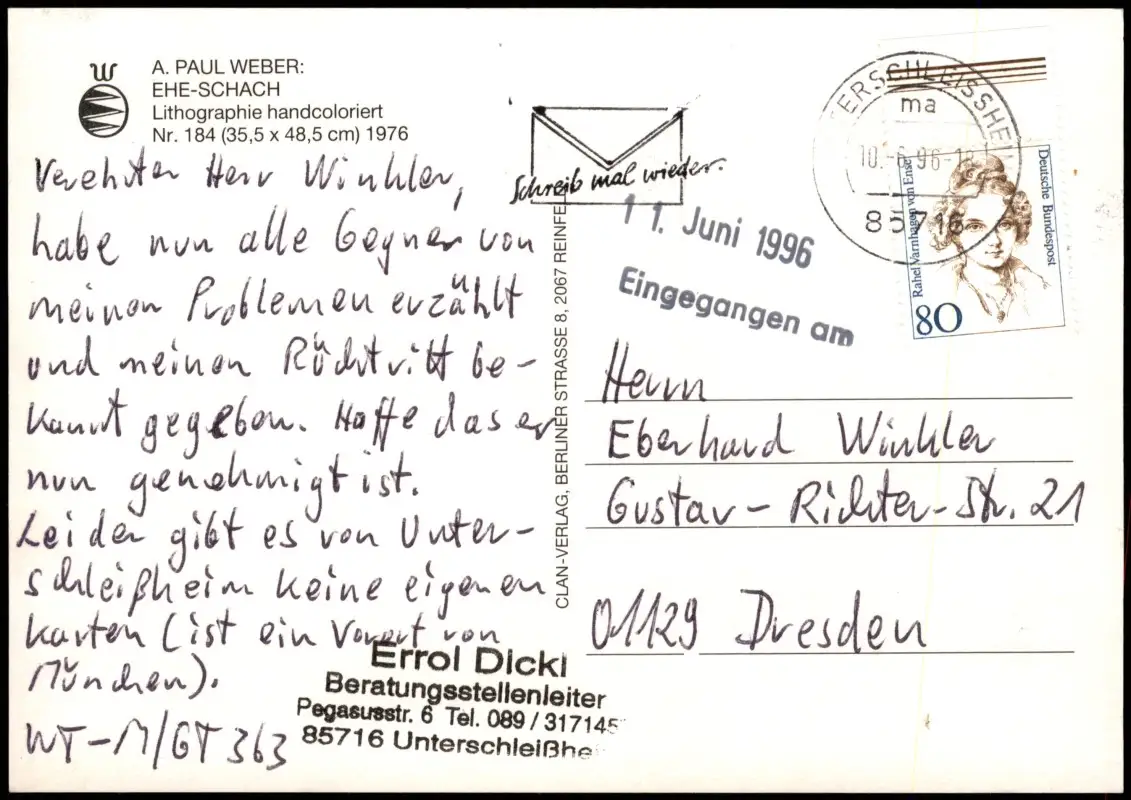 A. PAUL WEBER:
EHE-SCHACH
Lithographie handcoloriert
Nr. 184 (35,5 x 48,5 cm) 1976
Verehrter Herr Winkler,
habe nun alle Gegner von
meinen Problemen erzählt
und meinen Rücktritt be-
kannt gegeben. Hoffe das er
nun genehmigt ist.
Leider gibt es von Unter-
schleißheim keine eigenen
Karten (ist ein Vorort von
München).
WT-M/GT 363
Errol Dickl
Beratungsstellenleiter
Pegasusstr. 6 Tel. 089/317145
85716 Unterschleißhe
CLAN-VERLAG, BERLINER STRASSE 8, 2067 REINFE
Schreib mal wieder.
11. Juni 1996
Eingegangen am
ERSCHLEISSHEI
ma
10.-6.96-18
85716
Rahel Varnhagen von Ense
Deutsche Bundespost
80
Herrn
Eberhard Winkler
Gustav-Richter-Str. 21
01129 Dresden